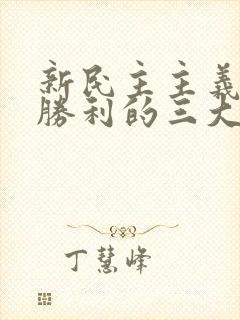 新民主主義
勝利的三大
丁慧峰